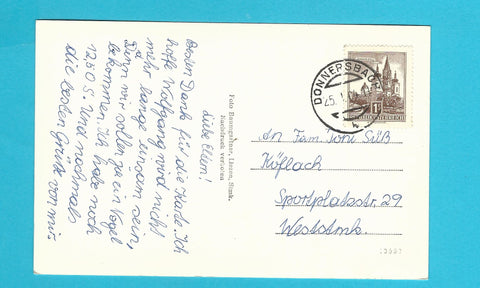 Liebe Eltern!
Besten Dank für die Karte. Ich
hoffe Wolfgang wird nicht
mehr lange einsam sein,
Denn wir sollen ja ein Vogel
bekommen. Ich habe noch
1230 S. Und nochmals
die besten Grüße von mir
Foto Baumgartner, Liezen, Stmk.
Nachdruck verboten
DONNERSBACH
25. 1
1 S
REPUBLIK ÖSTERREICH
An Fam. Toni Süß
Köflach
Sportplatzstr. 29
Weststmk.